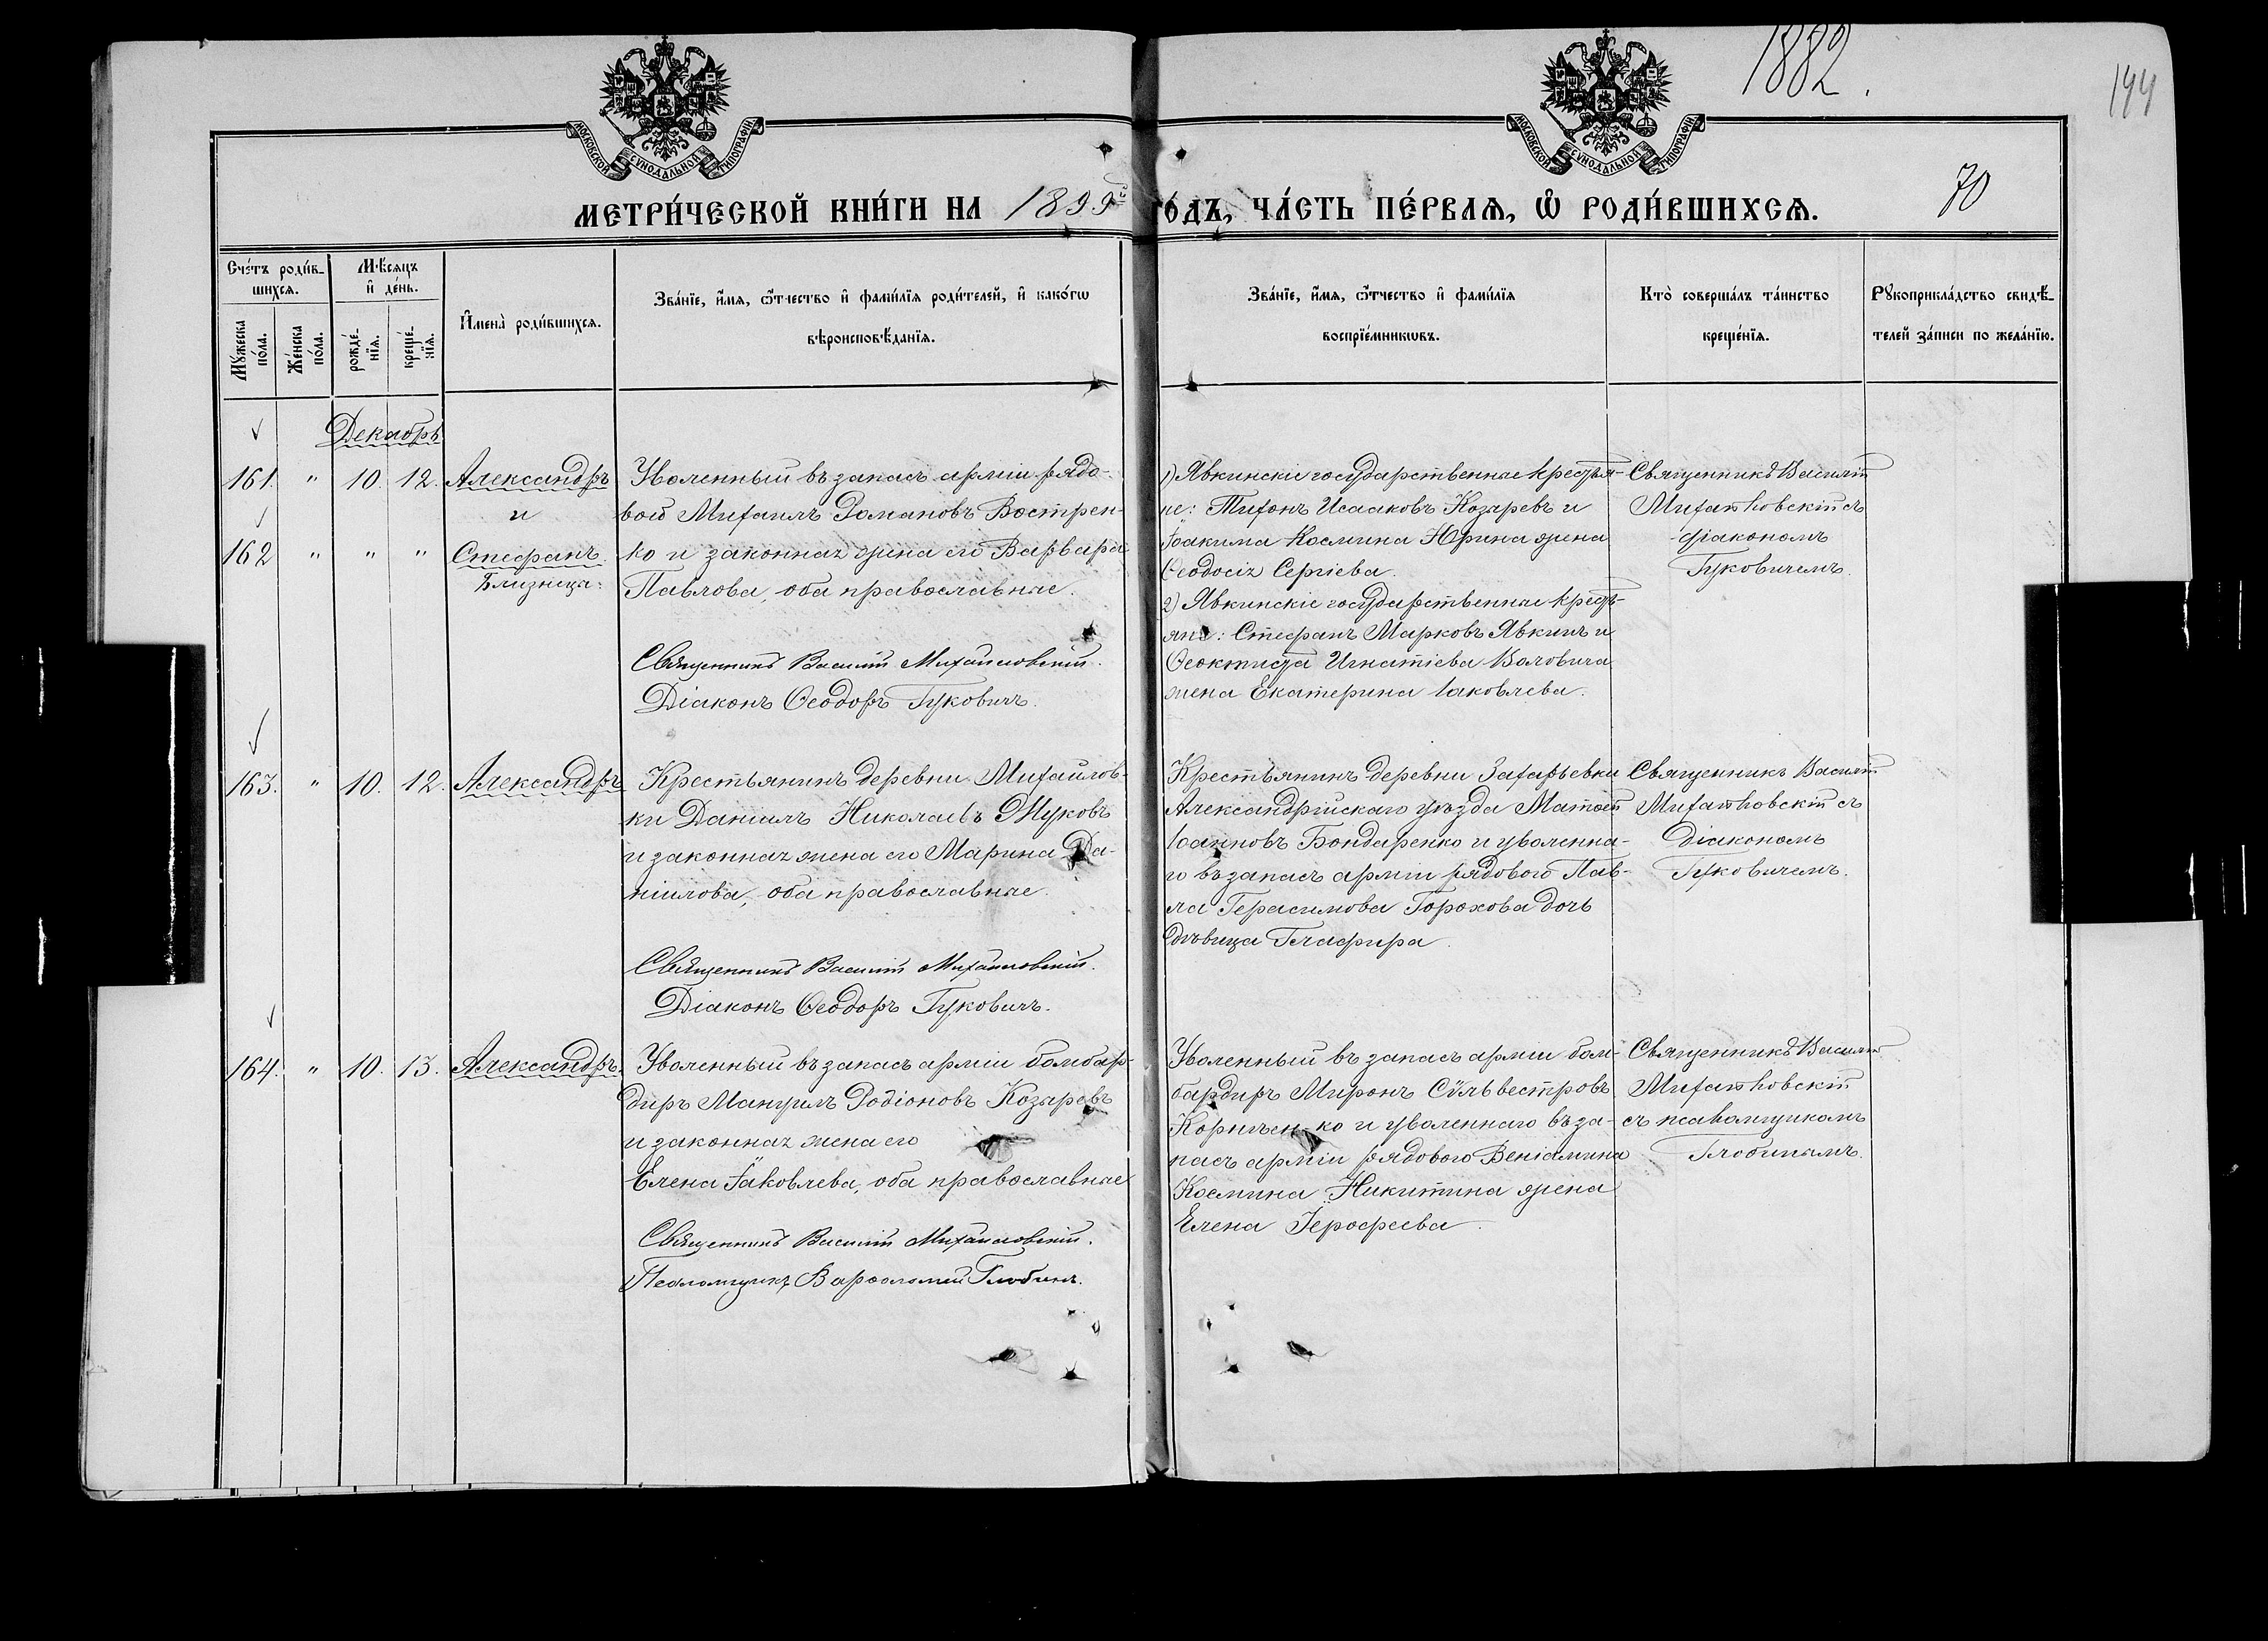 1882.
144
МОСКОВСКОЙ СѴНОДАЛЬНОЙ ТИПОГРАФІИ
МОСКОВСКОЙ СѴНОДАЛЬНОЙ ТИПОГРАФІИ
МЕТРИ́ЧЕСКОЙ КНИ́ГИ НА 1899й ГО́ДЪ, ЧА́СТЬ ПЕ́РВАѦ, Ѡ РОДИ́ВШИХСѦ.
70
Сче́тъ роди́в-
шихсѧ.
Мꙋжеска
по́ла.
Же́нска
по́ла.
Мѣ́сѧцъ
и҆ де́нь.
рожде́-
нїѧ.
креще́-
нїѧ.
И҆мена̀ роди́вшихсѧ.
Зва́нїе, и҆́мѧ, ѻ҆́тчество и҆ фами́лїѧ роди́телей, и҆ како́гѡ
вѣроисповѣ́данїѧ.
Зва́нїе, и҆́мѧ, ѻ҆́тчество и҆ фами́лїѧ
воспрїе́мникѡвъ.
Кто̀ соверша́лъ та́инство
креще́нїѧ.
Рꙋкоприкла́дство свидѣ́-
телей за́писи по жела́нїю.
Декабрь
161. " 10. 12. Александръ
и
162 " " " Стефанъ
близнецы.
Уволенный въ запасъ арміи рядо-
вой Михаилъ Романовъ Вострен-
ко и законная жена его Варвара
Павлова, оба православные.
Священникъ Василій Михайловскій.
Діаконъ Ѳеодоръ Гуковичъ.
1) Явкинскіе государственные крестья-
не: Тихонъ Исааковъ Козыревъ и
Іоакима Космина Юрина жена
Ѳеодосія Сергіева.
2) Явкинскіе государственные кресть-
яне: Стефанъ Марковъ Явкинъ и
Ѳеоктиста Игнатіева Воловича
жена Екатерина Іаковлева.
Священникъ Василій
Михайловскій съ
діакономъ
Гуковичемъ.
163. " 10. 12. Александръ
Крестьянинъ деревни Михайлов-
ки Даніилъ Николаевъ Жуковъ
и законная жена его Марина Да-
ніилова, оба православные.
Священникъ Василій Михайловскій.
Діаконъ Ѳеодоръ Гуковичъ.
Крестьянинъ деревни Захарьевки
Александрійскаго уѣзда Матѳей
Іоанновъ Бондаренко и уволенна-
го въ запасъ арміи рядового Пав-
ла Герасимова Горохова дочь
дѣвица Глафира.
Священникъ Василій
Михайловскій съ
діакономъ
Гуковичемъ.
164. " 10. 13. Александръ.
Уволенный въ запасъ арміи бомбар-
диръ Мануилъ Родіоновъ Козыревъ
и законная жена его
Елена Іаковлева, оба православные
Священникъ Василій Михайловскій.
Псаломщикъ Варѳоломей Глобинъ.
Уволенный въ запасъ арміи бом-
бардиръ Миронъ Сѵльвестровъ
Корнѣен-ко и уволеннаго въ за-
пасъ арміи рядового Веніамина
Космина Никитина жена
Елена Іерофеева.
Священникъ Василій
Михайловскій
съ псаломщикомъ
Глобинымъ.